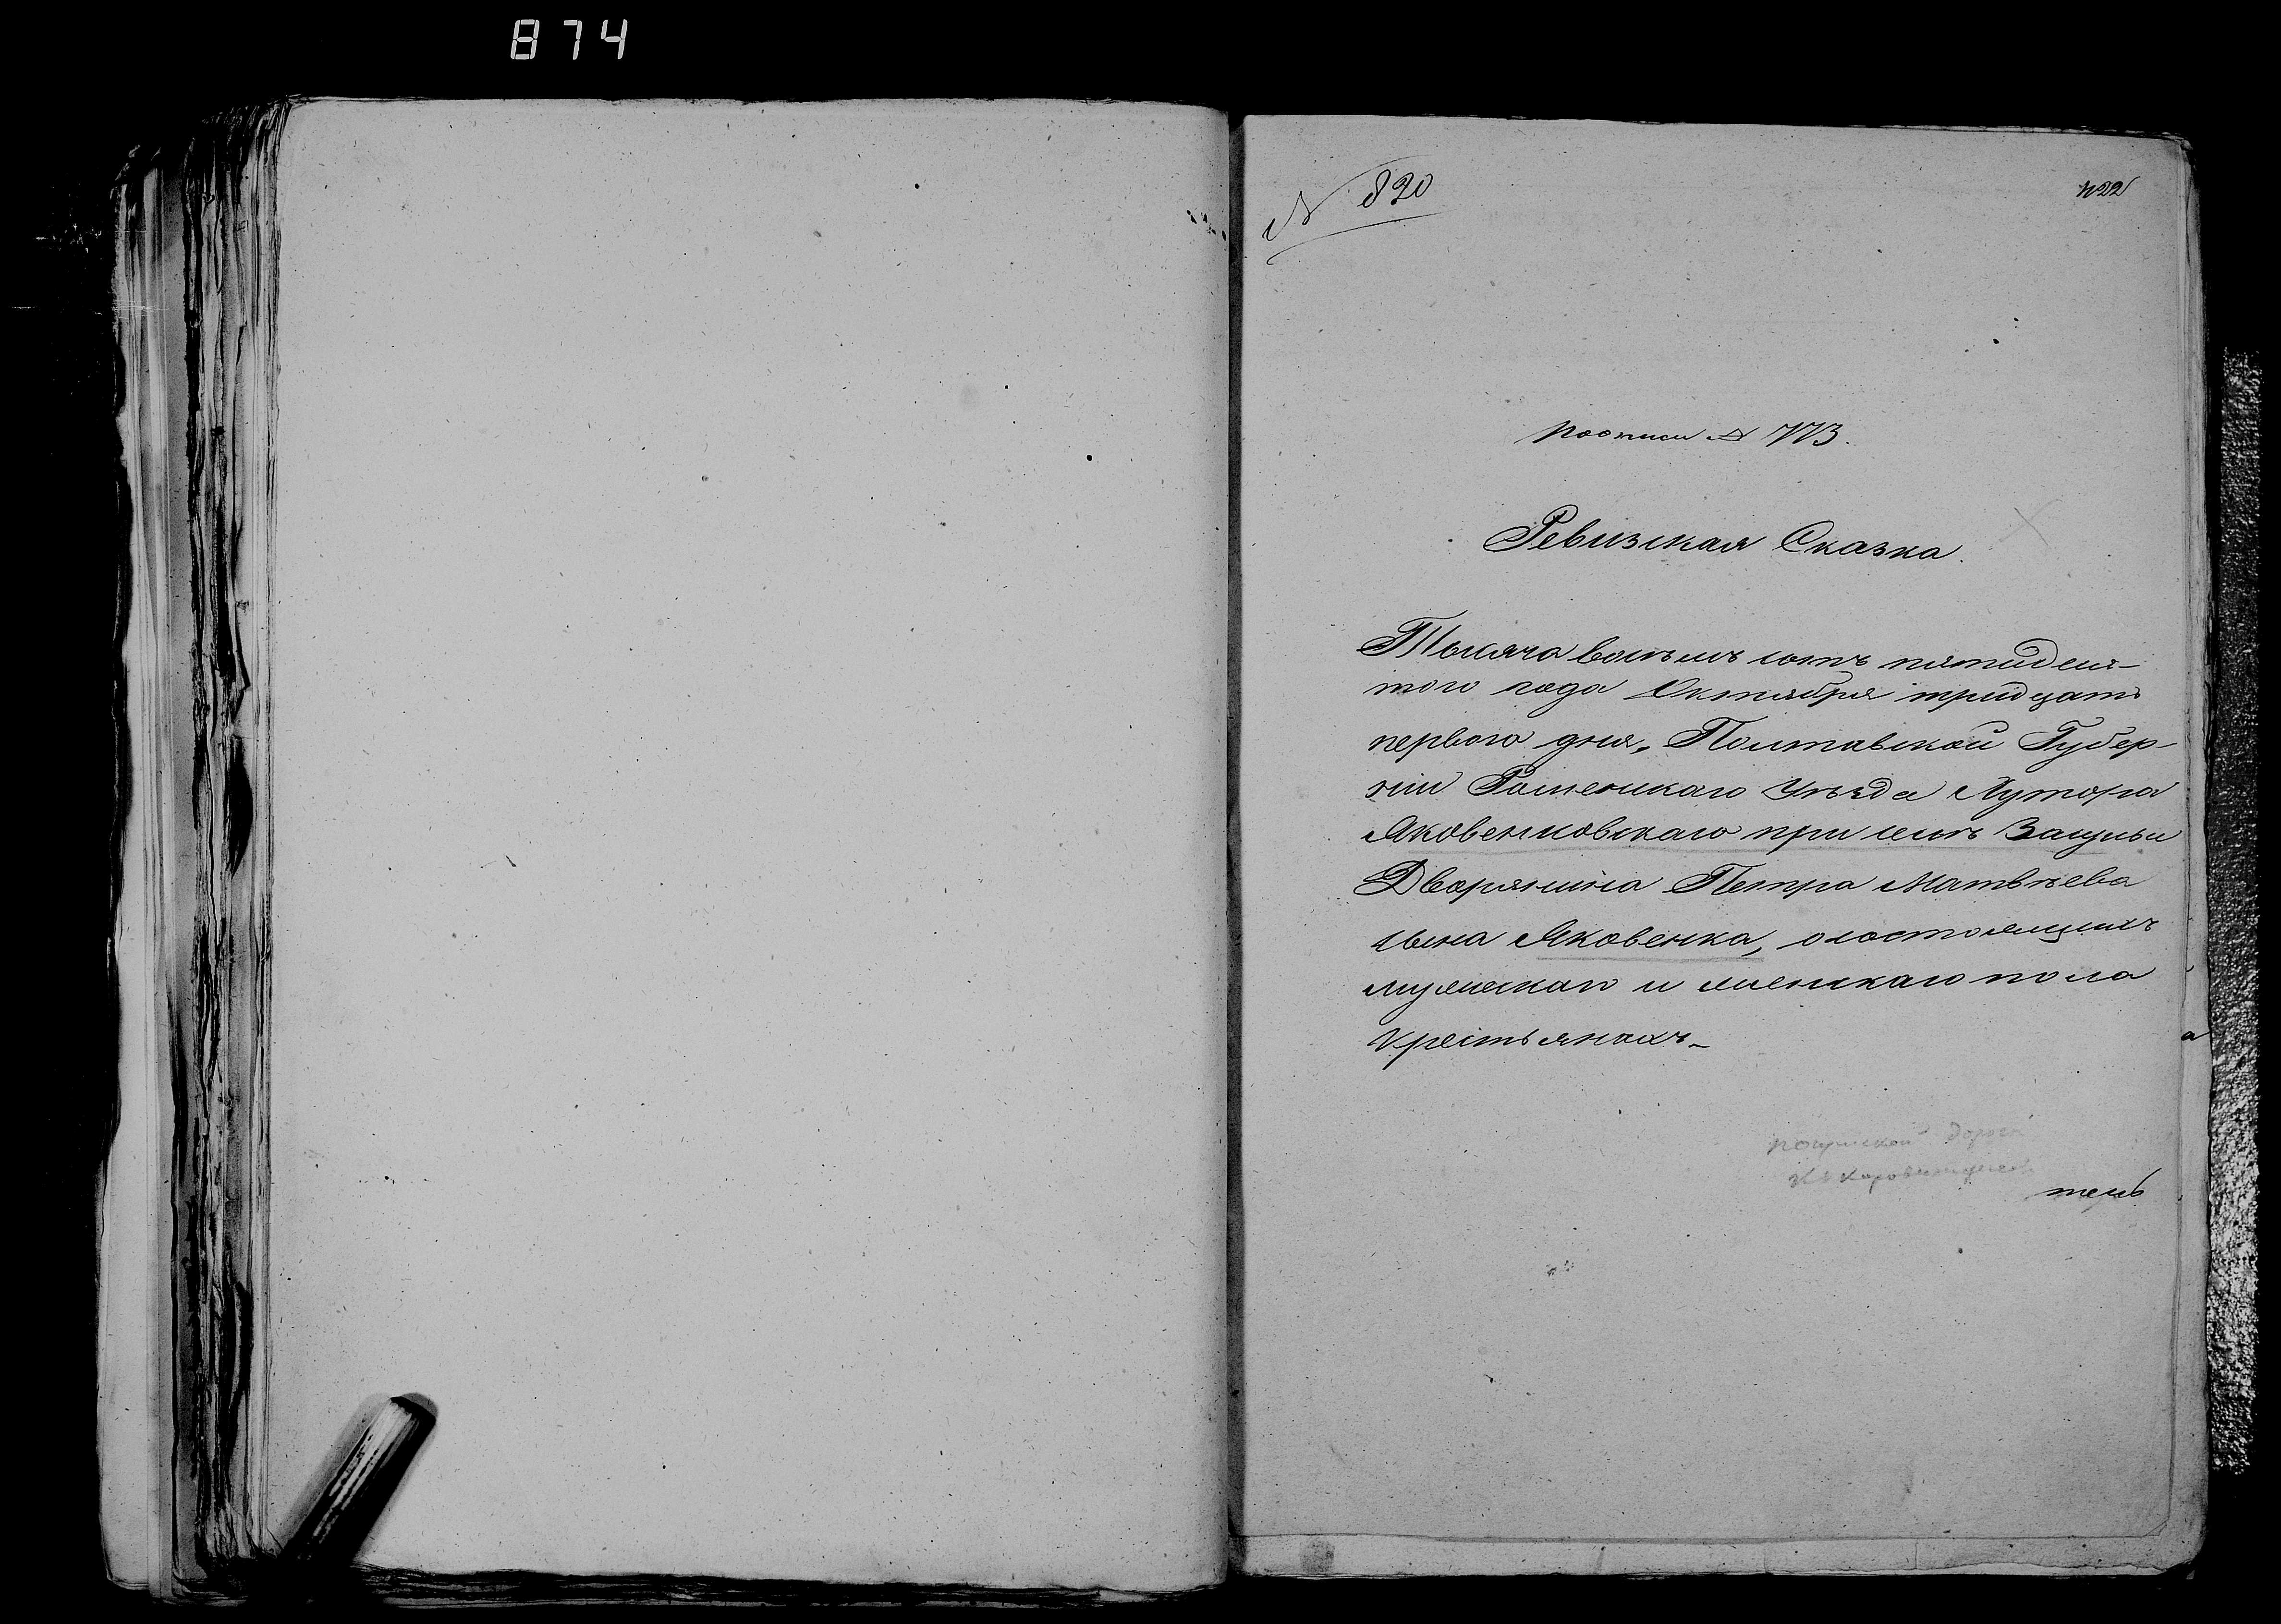 874
№ 820
1122
по описи № 773.
Ревизская Сказка.
Тысяча восемь сотъ пятидеся-
того года Октября тридцать
перваго дня, Полтавской Губер-
нии Роменскаго Уѣзда Хутора
Яковенковскаго при селѣ
Дворянина Петра Матвѣева
сына Яковенка, о состоящихъ
мужескаго и женскаго пола
Крестьянахъ-
дороги